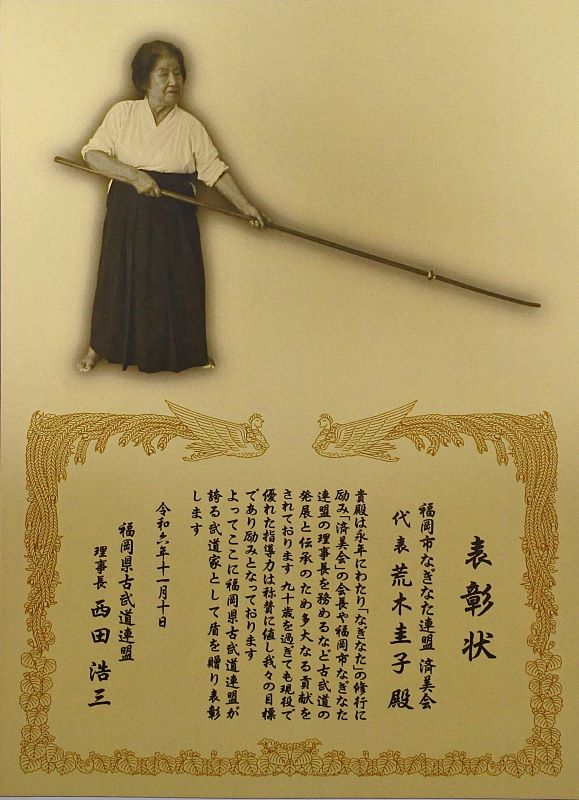 表彰状
福岡市なぎなた連盟 済美会
代表 荒木圭子 殿
貴殿は永年にわたり「なぎなた」の修行に
励み「済美会」の会長や福岡市なぎなた
連盟の理事長を務めるなど古武道の
発展と伝承のため多大なる貢献を
されております 九十歳を過ぎても現役で
優れた指導力は称賛に値し我々の目標
であり励みとなっております
よってここに福岡県古武道連盟が
誇る武道家として盾を贈り表彰
します
令和六年十一月十日
福岡県古武道連盟
理事長 西田浩三